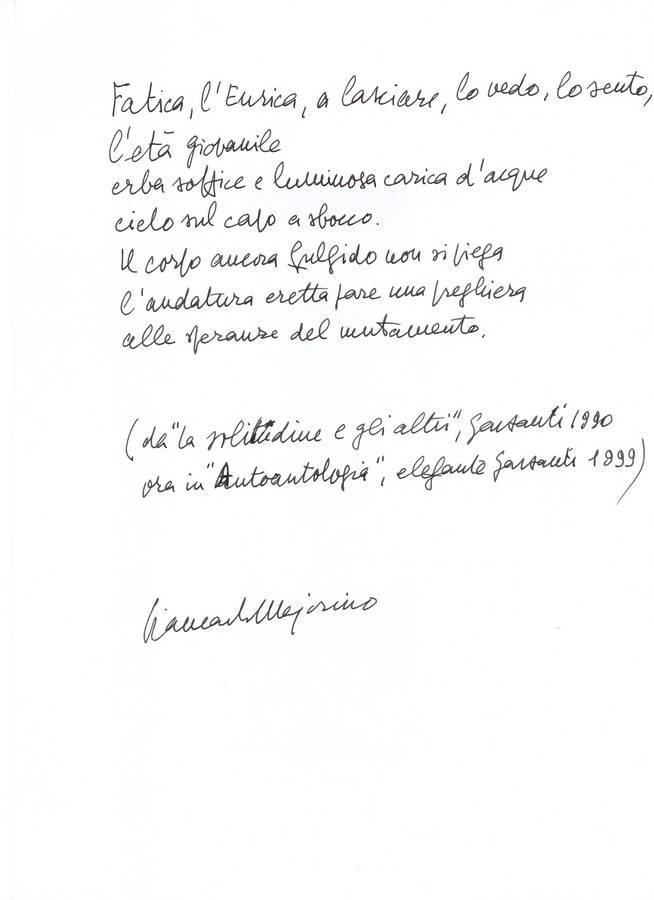 Fatica, l'Enrica, a lasciare, lo vedo, lo sento,
l'età giovanile
erba soffice e luminosa carica d'acque
cielo sul capo a sbocco.
Il corpo ancora fulgido non si piega
l'andatura eretta pare una preghiera
alle speranze del mutamento.
(da "la solitudine e gli altri", Garzanti 1990
ora in "Autoantologia", elefanti Garzanti 1999)
Giancarlo Majorino